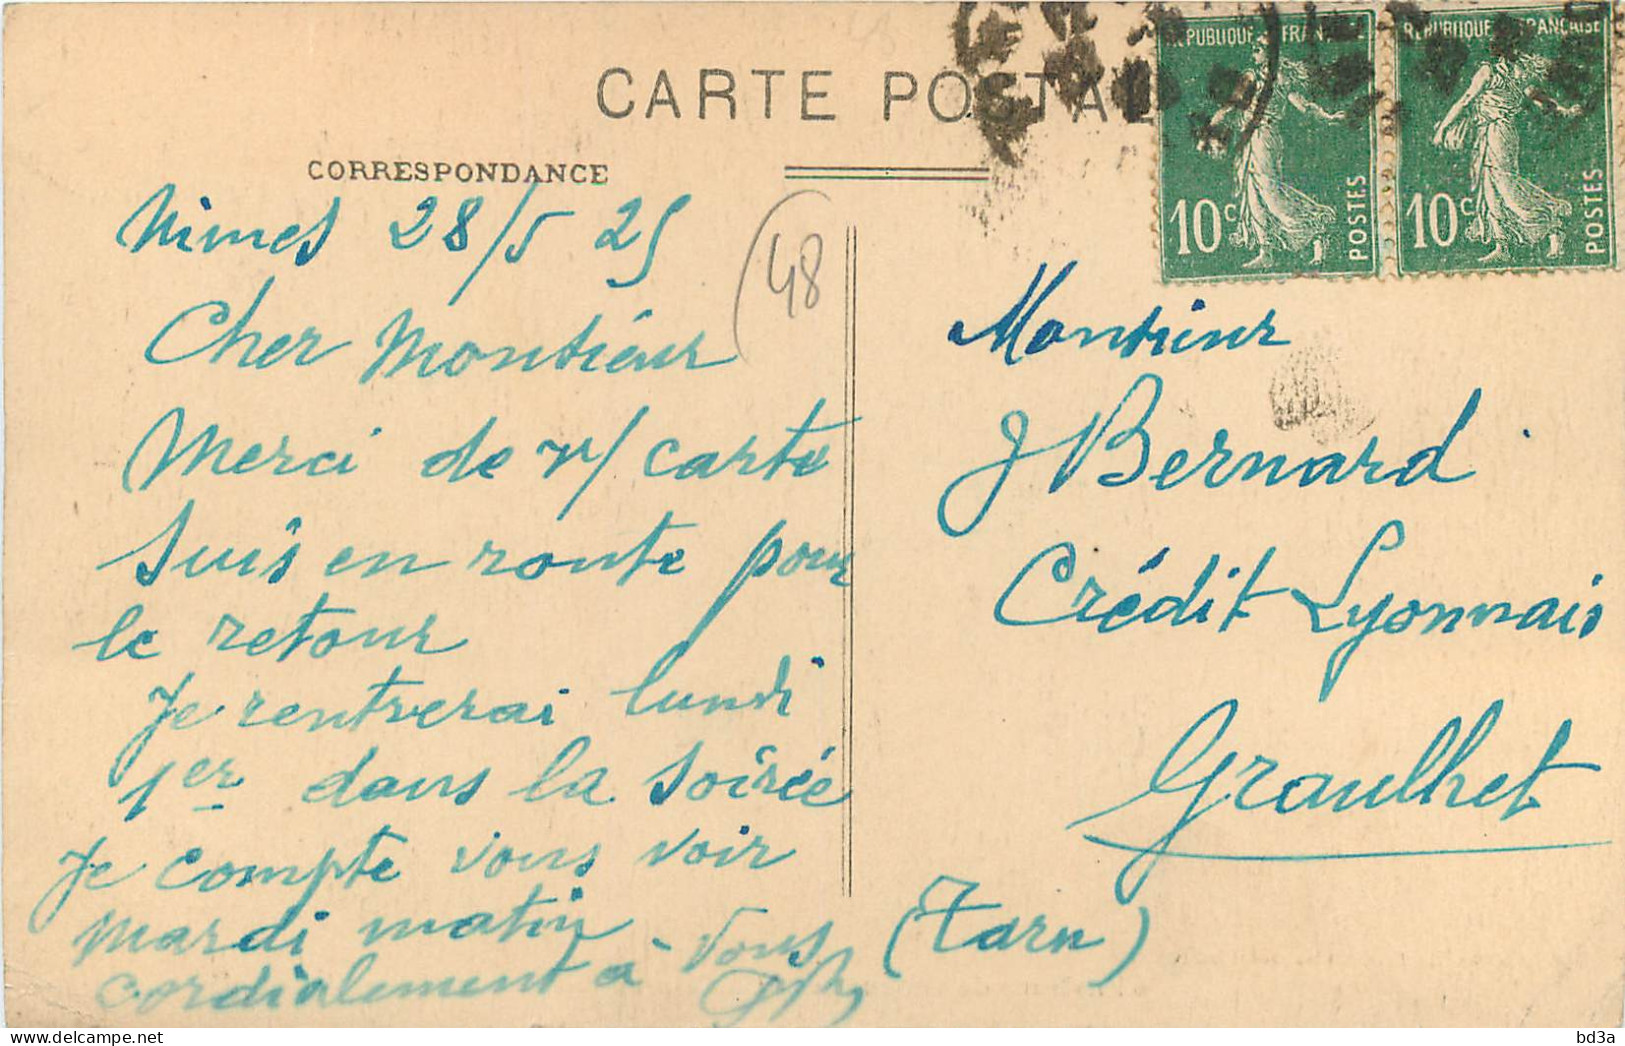 CARTE POSTALE
CORRESPONDANCE
REPUBLIQUE FRANÇAISE
10c POSTES
REPUBLIQUE FRANÇAISE
10c POSTES
Nimes 28/5 25
(48
Cher Monsieur
Merci de v/ carte
Suis en route pour
le retour
Je rentrerai lundi
1er dans la soirée
Je compte vous voir
mardi matin
cordialement à vous
Monsieur
J Bernard
Crédit Lyonnais
Graulhet
(Tarn)
bd3a